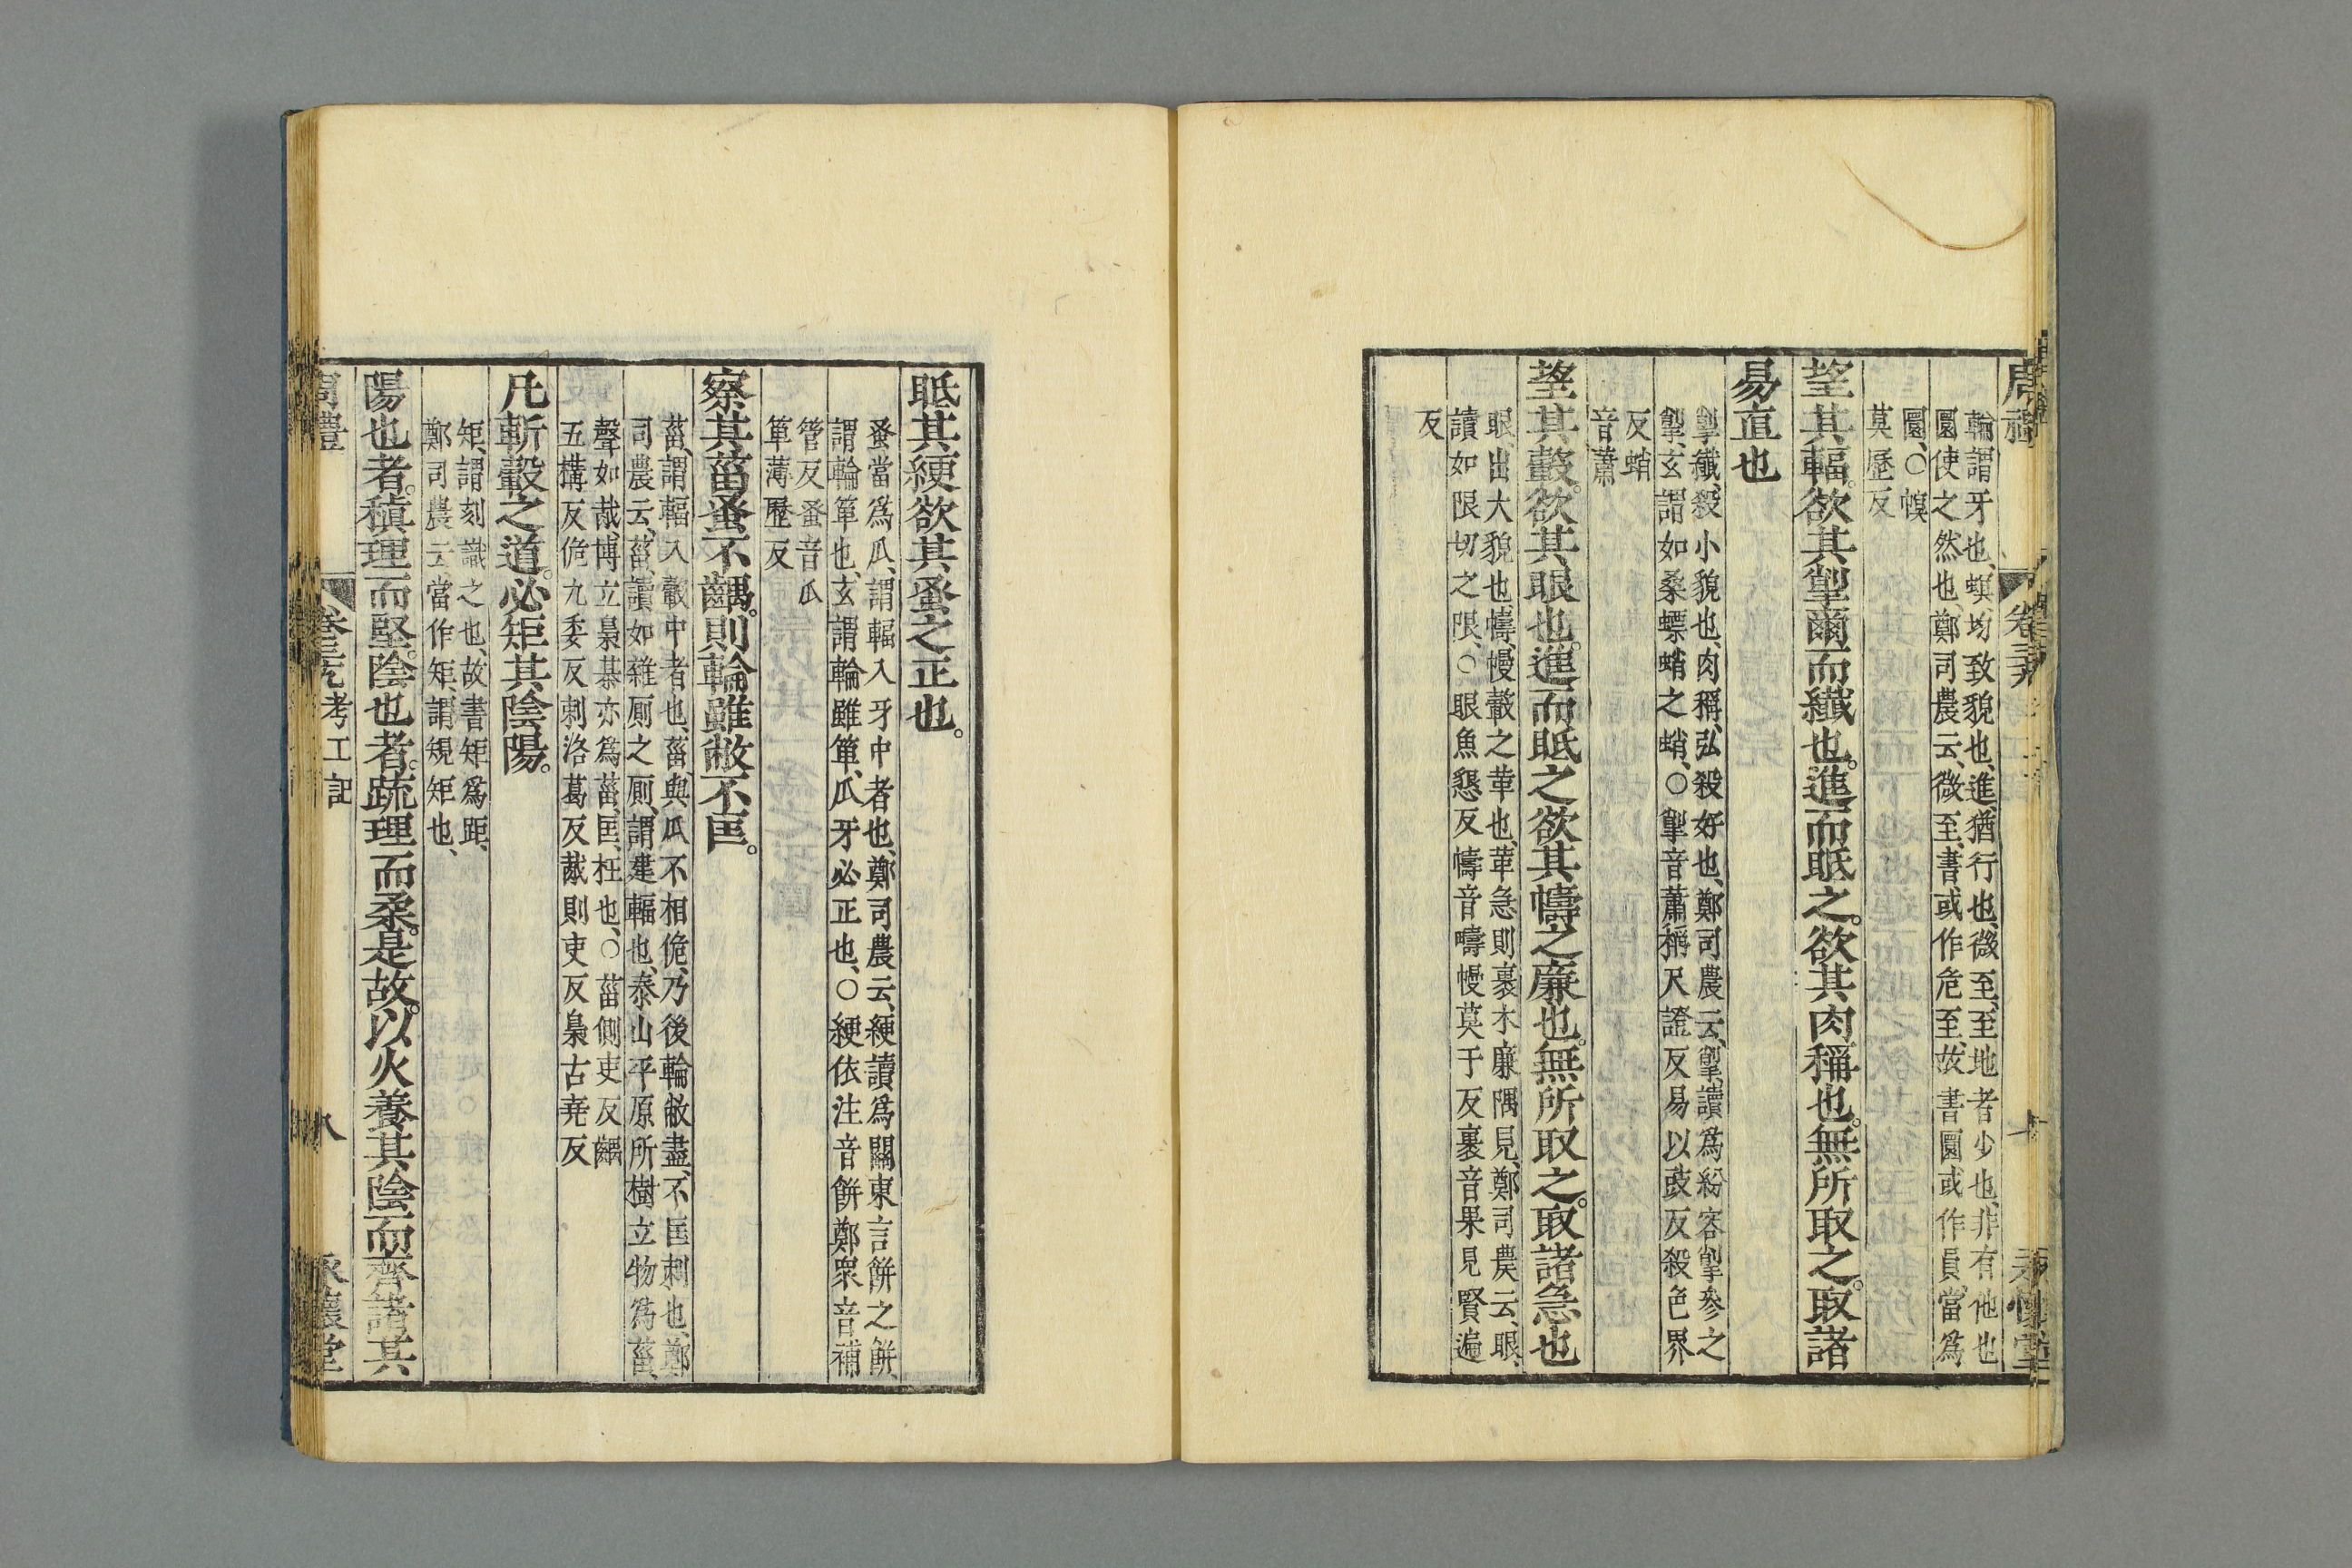 輪謂牙也、幎、均致貌也、進、猶行也、微至、至地者少也、非有他也
圜使之然也、鄭司農云、微至、書或作危至、故書圜或作員、當爲
圜、○幎
莫歷反
望其輻。欲其掣爾而纖也。進而眡之。欲其肉稱也。無所取之。取諸
易直也
掣纖、殺小貌也、肉稱、弘殺好也、鄭司農云、掣、讀爲紛容掣參之
掣、玄謂如桑螵蛸之蛸、○掣音蕭稱尺證反易以豉反殺色界
反蛸
音蕭
望其轂。欲其眼也。進而眡之欲其幬之廉也。無所取之。取諸急也
眼、出大貌也、幬、幔轂之革也、革急則裹木廉隅見、鄭司農云、眼、
讀如限切之限、○眼魚懇反幬音疇幔莫于反裹音果見賢遍
反
眡其綆欲其蚤之正也。
蚤當爲爪、謂輻入牙中者也、鄭司農云、綆讀爲關東言餅之餅、
謂輪箄也、玄謂輪雖箄、爪牙必正也、○綆依注音餅鄭衆音補
管反蚤音爪
箄薄歷反
察其菑蚤不齵。則輪雖敝不匡。
菑、謂輻入轂中者也、菑與爪不相佹、乃後輪敝盡、不匡刺也、鄭
司農云、菑、讀如雜厠之厠、謂建輻也、泰山平原所樹立物爲菑、
聲如胾、博立梟棊亦爲菑、匡、枉也、○菑側吏反齵
五構反佹九委反刺洛葛反胾則吏反梟古堯反
凡斬轂之道。必矩其陰陽。
矩、謂刻識之也、故書矩爲距、
鄭司農云當作矩、謂規矩也、
陽也者。稹理而堅。陰也者。疏理而柔。是故。以火養其陰而齊諸其
周禮 卷三九 考工記 八 永懷堂